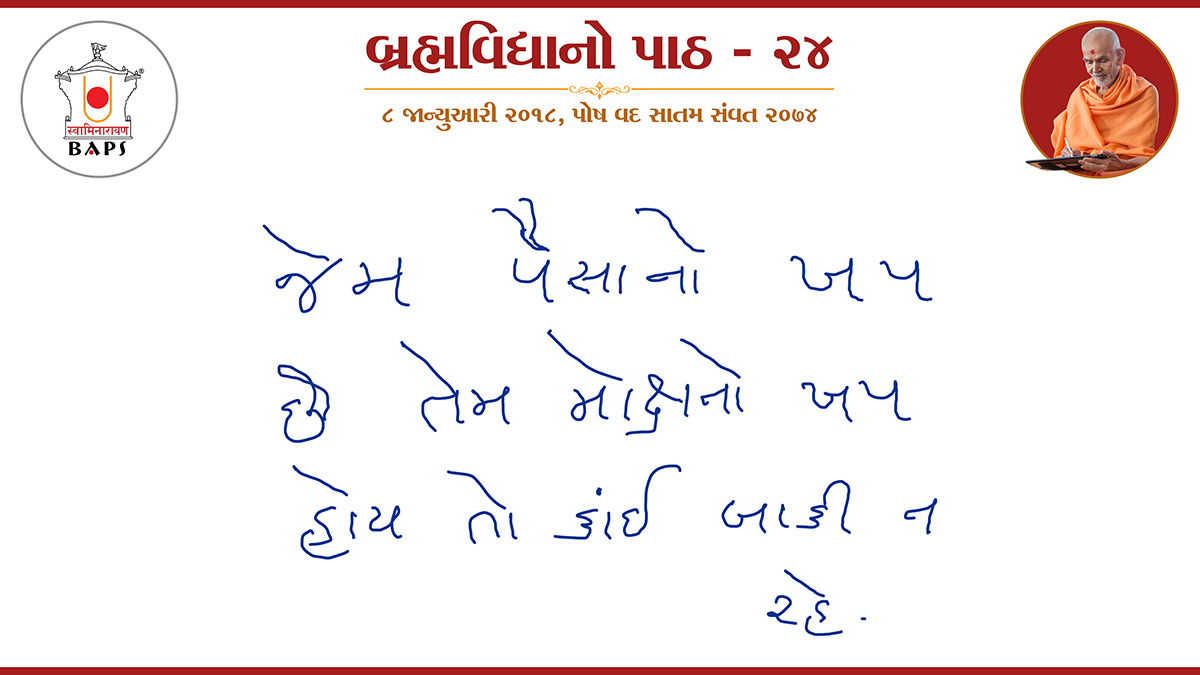 બ્રહ્મવિદ્યાનો પાઠ - ૨૪
૮ જાન્યુઆરી ૨૦૧૮, પોષ વદ સાતમ સંવત ૨૦૭૪
स्वामिनारायण
BAPS
જેમ પૈસાનો ખપ
છે તેમ મોક્ષનો ખપ
હોય તો કાંઈ બાકી ન
રહે.